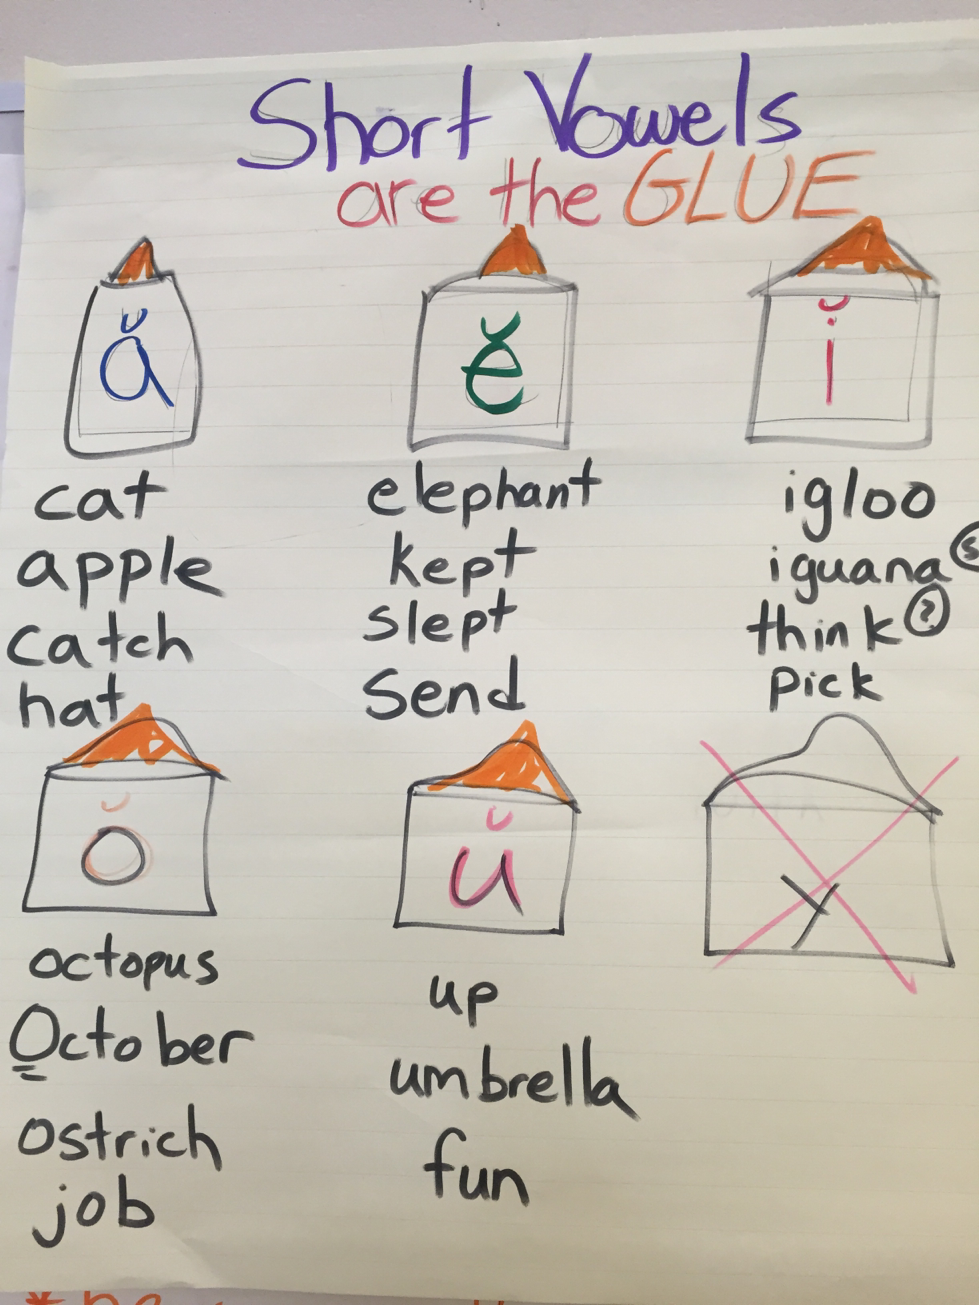 Short Vowels
are the GLUE
ă
cat
apple
catch
hat
ĕ
elephant
kept
slept
send
ĭ
igloo
iguana
think ?
pick
ŏ
octopus
October
ostrich
job
ŭ
up
umbrella
fun
y